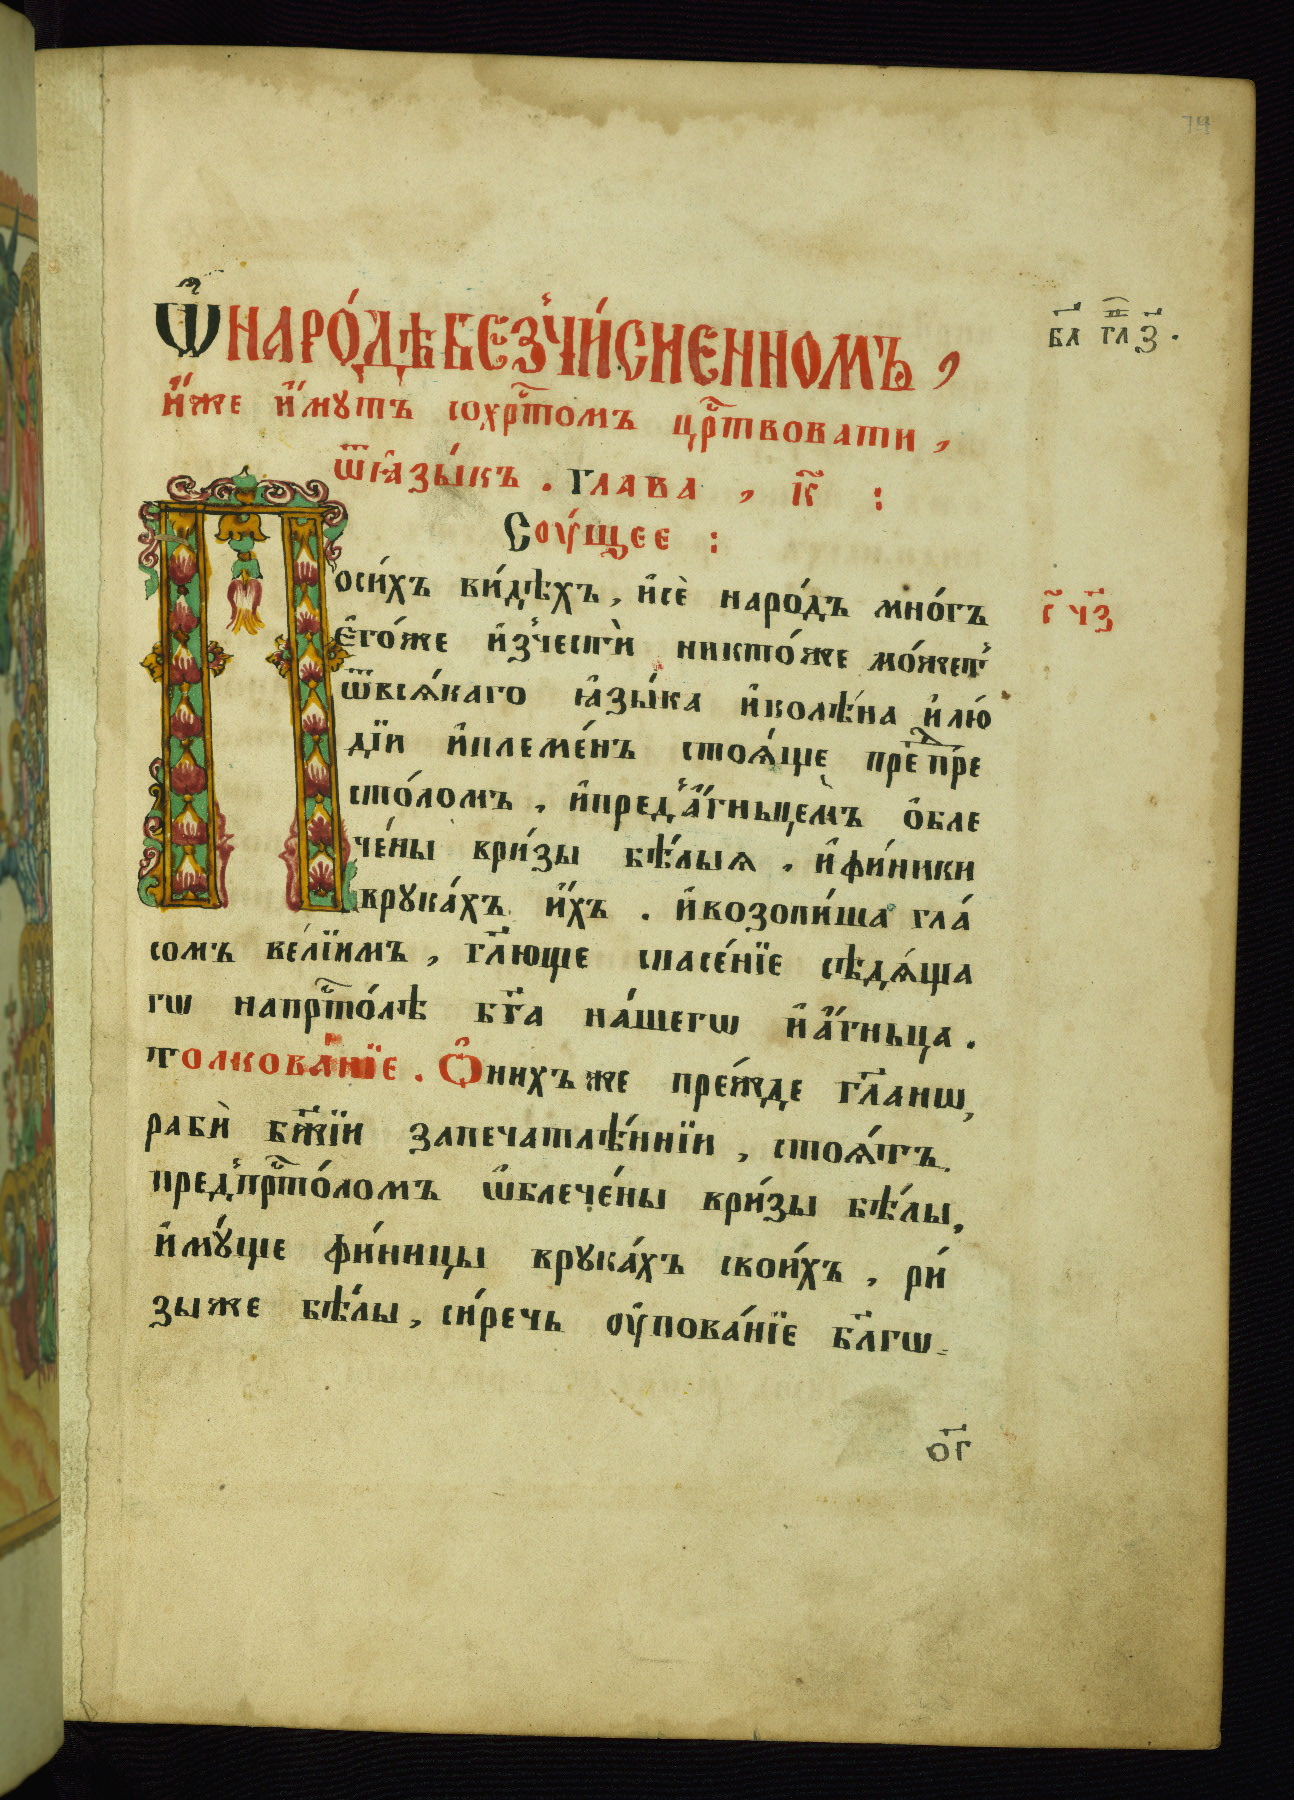 74
Ѽ наро́дѣ беꙁ̾чи́сменномъ,
и҆́же и҆́мꙋтъ со хрⷭ҇то́мъ црⷭ҇твовати,
ѿ ꙗ҆зы́къ. Глава, к҃ :
Сѹ́щее :
По си́хъ ви́дѣхъ, и҆ сѐ наро́дъ мно́гъ
є҆го́же и҆з̾честѝ никто́же мо́жет̾
ѿ всѧ́каго ꙗ҆зы́ка и҆ колѣ́на и҆ лю́
дїи и҆ племе́нъ стоѧ́ще преⷣ пре
сто́ломъ, и҆ пред̾ а҆́гньцемъ ѻ҆бле
че́ны в ри́зы бѣ́лыѧ, и҆ фи́ники
в рꙋка́хъ и҆́хъ. и҆ возопи́ша гла́
сомъ ве́лїимъ, гл҃юще спасе́нїе сѣдѧ́ща
гѡ на прⷭ҇то́лѣ бг҃а на́шегѡ и҆ а҆́гньца.
Толкова́нїе. Ѽ ни́хъ же пре́жде гл҃анѡ,
рабѝ бж҃їи запечатлѣ́ннїи, стоѧ́тъ
пред̾ прⷭ҇то́ломъ ѡ҆блече́ны в ри́зы бѣ́лы,
и҆мꙋ́ще фи́ницы в рꙋка́хъ свои́хъ, ри́
зы же бѣ́лы, си́речь ѹ҆пова́нїе бл҃гѡ
ѻ҃г